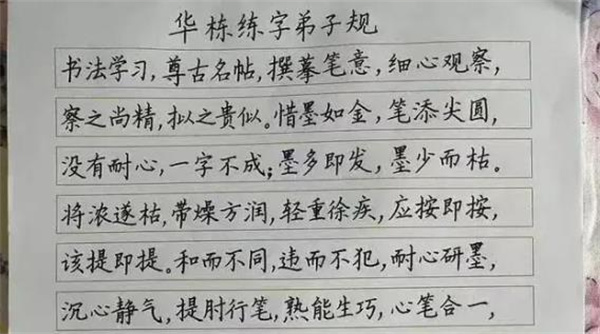 华栋练字弟子规
书法学习,尊古名帖,撰摹笔意,细心观察,
察之尚精,拟之贵似。惜墨如金,笔添尖圆,
没有耐心,一字不成;墨多即发,墨少而枯。
将浓遂枯,带燥方润,轻重徐疾,应按即按,
该提即提。和而不同,违而不犯,耐心研墨,
沉心静气,提肘行笔,熟能生巧,心笔合一,